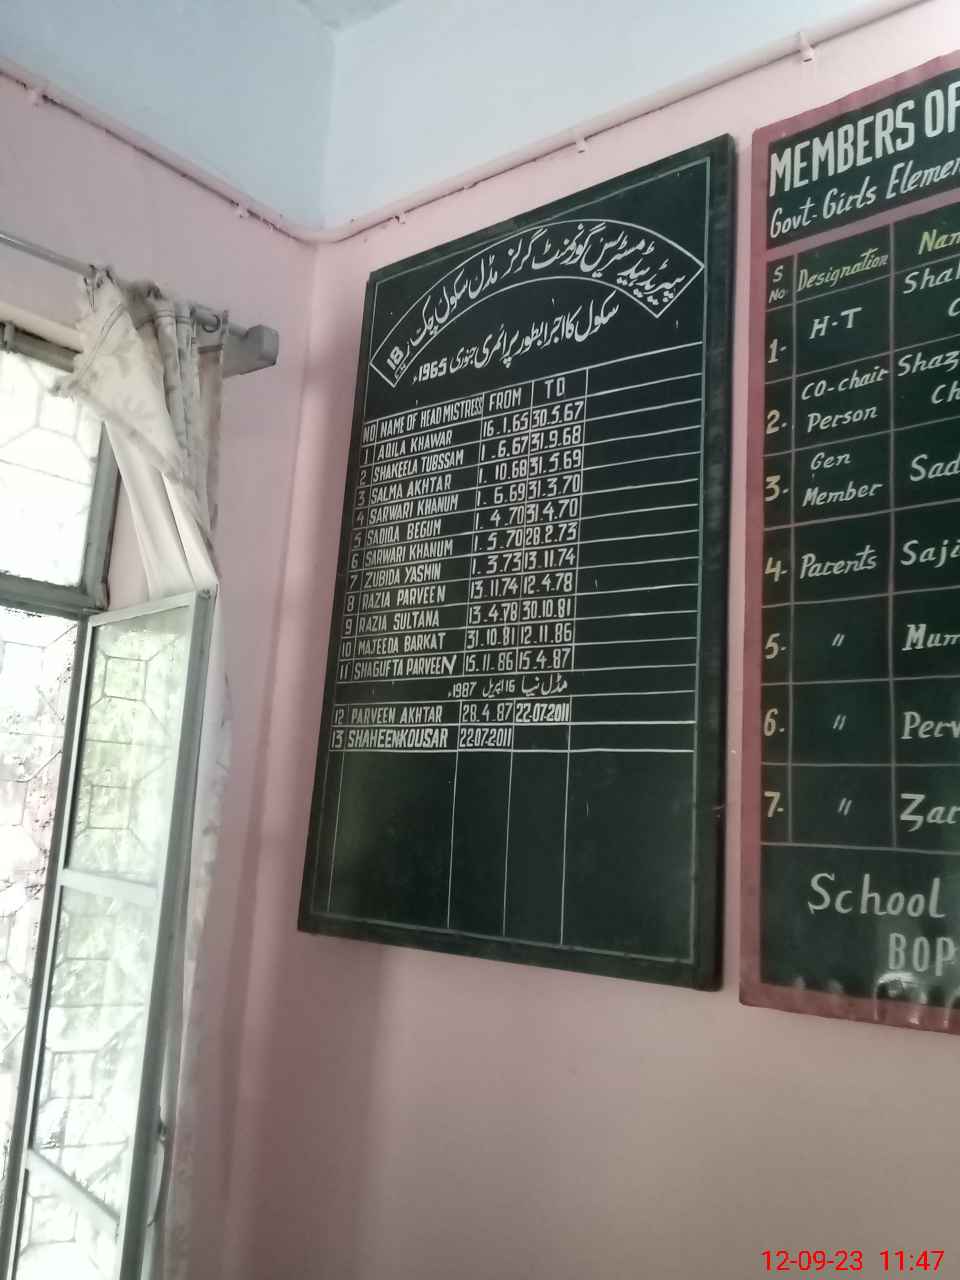 ہیڈ مسٹریس گورنمنٹ گرلز مڈل سکول چک 18
سکول کا اجرا بطور پرائمری جنوری 1965ء
NO NAME OF HEAD MISTRESS FROM TO
1 AQILA KHAWAR 16.1.65 30.5.67
2 SHAKEELA TUBSSAM 1.6.67 31.9.68
3 SALMA AKHTAR 1.10.68 31.5.69
4 SARWARI KHANUM 1.6.69 31.3.70
5 SADIQA BEGUM 1.4.70 31.4.70
6 SARWARI KHANUM 1.5.70 28.2.73
7 ZUBIDA YASMIN 1.3.73 13.11.74
8 RAZIA PARVEEN 13.11.74 12.4.78
9 RAZIA SULTANA 13.4.78 30.10.81
10 MAJEEDA BARKAT 31.10.81 12.11.86
11 SHAGUFTA PARVEEN 15.11.86 15.4.87
مڈل بنا 16 اپریل 1987ء
12 PARVEEN AKHTAR 28.4.87 22-07-2011
13 SHAHEENKOUSAR 22-07-2011
MEMBERS OF
Govt- Girls Elemen
S No Designation Nam
1- H-T Shah
2- CO-chair Person Shaz Ch
3- Gen Member Sad
4- Parents Saji
5- " Mum
6- " Perv
7- " Zar
School
BOP
12-09-23 11:47